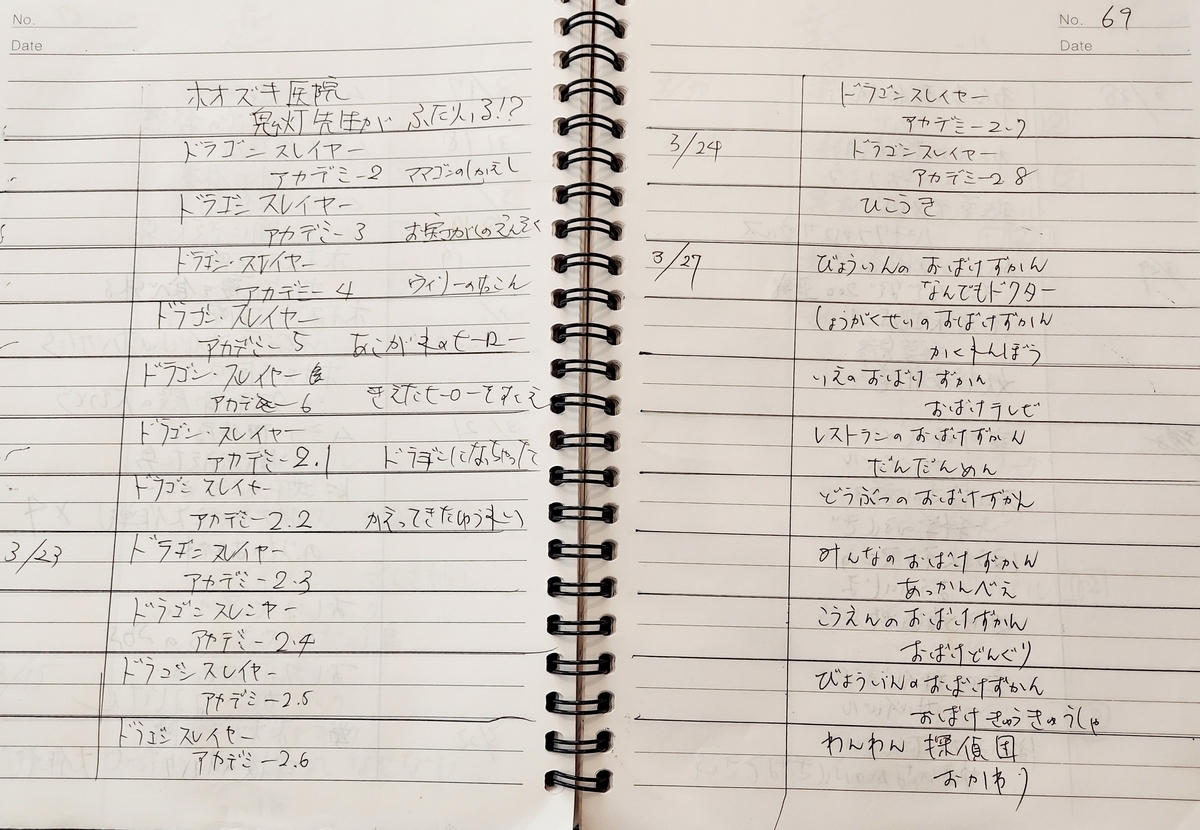 No.
Date
ホオズキ医院
鬼灯先生が ふたりいる!?
ドラゴンスレイヤー
アカデミー2 ママゴンのしかえし
ドラゴン スレイヤー
アカデミー 3 お宝さがしのえんそく
ドラゴン・スレイヤー
アカデミー 4 ウィリーのけっこん
ドラゴン・スレイヤー
アカデミー 5 あこがれのヒーロー
ドラゴン・スレイヤー
アカデミー 6 きえたヒーローをすくえ
ドラゴン・スレイヤー
アカデミー2.1 ドラゴンになっちゃった
ドラゴン スレイヤー
アカデミー2.2 かえってきたゆうれい
3/23 ドラゴンスレイヤー
アカデミー2.3
ドラゴン スレイヤー
アカデミー2.4
ドラゴンスレイヤー
アカデミー2.5
ドラゴンスレイヤー
アカデミー2.6
No. 69
Date
ドラゴンスレイヤー
アカデミー2.7
3/24 ドラゴンスレイヤー
アカデミー2 8
ひこうき
3/27 びょういんの おばけずかん
なんでもドクター
しょうがくせいの おばけずかん
かくれんぼう
いえの おばけ ずかん
おばけテレビ
レストランの おばけずかん
だんだんめん
どうぶつの おばけずかん
みんなの おばけずかん
あっかんべえ
こうえんの おばけずかん
おばけどんぐり
びょういんの おばけずかん
おばけきゅうきゅうしゃ
わんわん 探偵団
おかわり